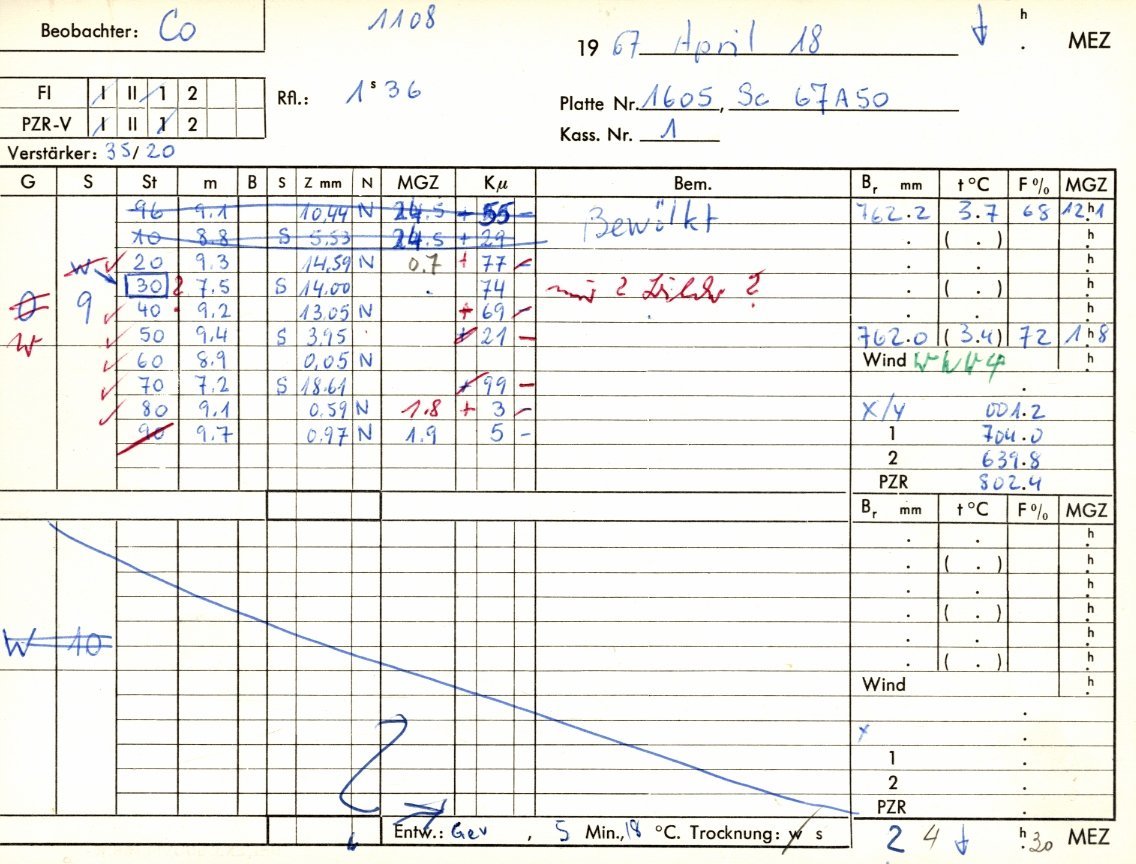 Beobachter: Co
1108
19 67 April 18
h . MEZ
FI I II 1 2
PZR-V I II 1 2
Rfl.: 1 s 36
Platte Nr. 1605, Sc 67A50
Kass. Nr. 1
Verstärker: 35/20
G S St m B S Z mm N MGZ Kμ Bem. Br mm t °C F % MGZ
96 9.1 10.44 N 24.5 + 55 - Bewölkt 762.2 3.7 68 12 h 1
10 8.8 S 5.53 24.5 + 29 - . ( . ) h
w 20 9.3 14.59 N 0.7 + 77 - . . h
30 7.5 S 14.00 . 74 . ( . ) h
0 9 40 9.2 13.05 N + 69 - . . h
w 50 9.4 S 3.95 + 21 - 762.0 (3.4) 72 1 h 8
60 8.9 0.05 N Wind h
70 7.2 S 18.61 + 99 - .
80 9.1 0.59 N 1.8 + 3 - X/Y 001.2
90 9.7 0.97 N 1.9 5 - 1 704.0
2 639.8
PZR 802.4
Br mm t °C F % MGZ
. . h
. ( . ) h
. . h
. ( . ) h
W 10 . . h
. ( . ) h
Wind h
.
x .
1 .
2 .
PZR .
Entw.: Gev , 5 Min., 18 °C. Trocknung: w s
2 4 h . 30 MEZ